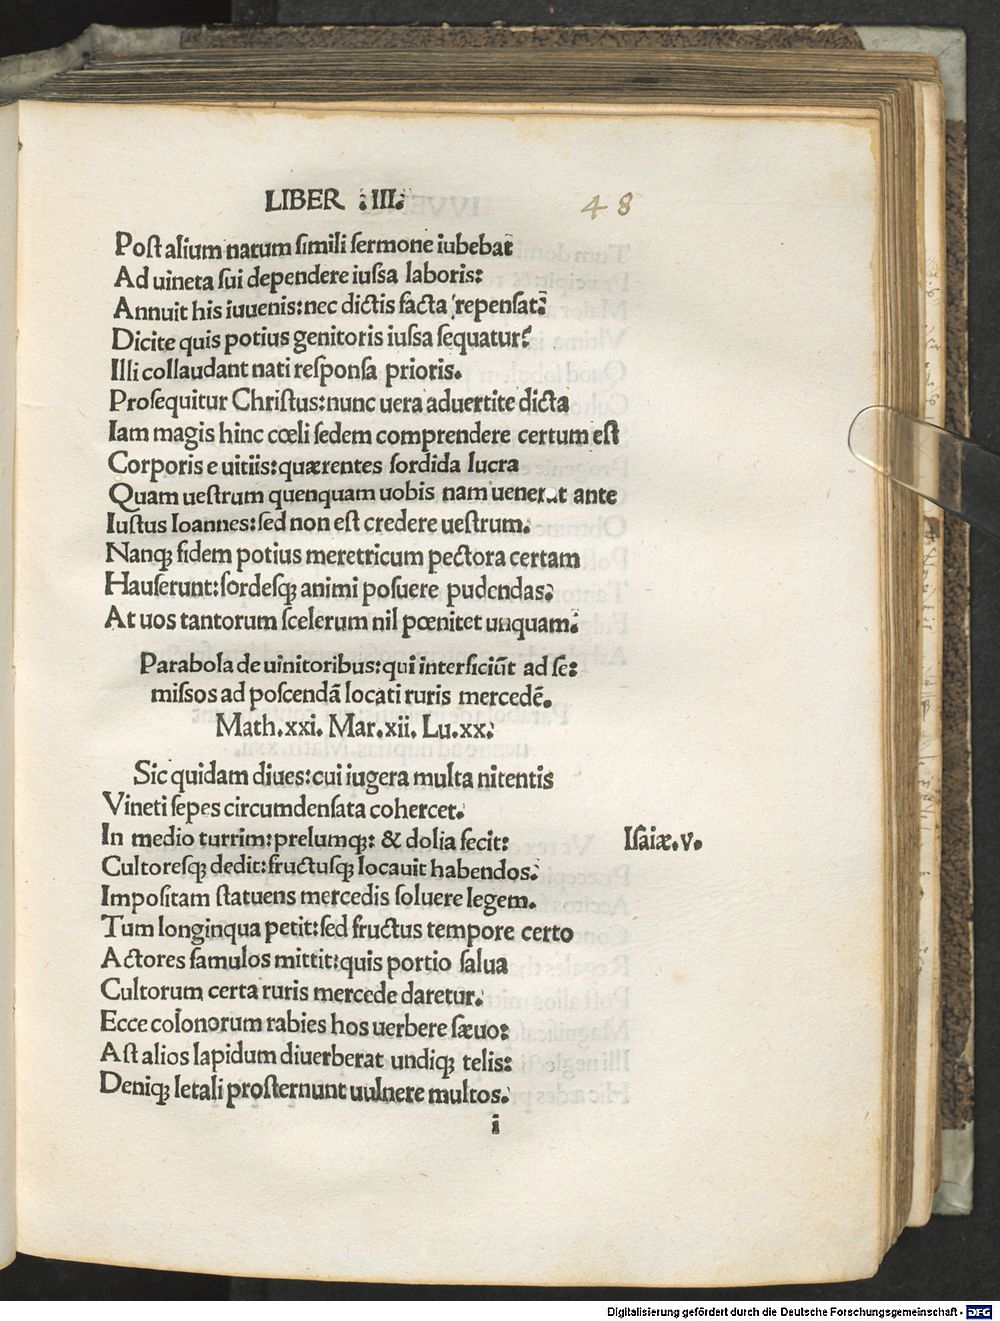 LIBER .III.
48
Post alium natum simili sermone iubebat
Ad uineta sui dependere iussa laboris:
Annuit his iuuenis: nec dictis facta repensat.
Dicite quis potius genitoris iussa sequatur?
Illi collaudant nati responsa prioris.
Prosequitur Christus: nunc uera aduertite dicta
Iam magis hinc cœli sedem comprendere certum est
Corporis e uitiis: quærentes sordida lucra
Quam uestrum quenquam uobis nam uenerat ante
Iustus Ioannes: sed non est credere uestrum.
Nanqꝫ fidem potius meretricum pectora certam
Hauserunt: sordesqꝫ animi posuere pudendas.
At uos tantorum scelerum nil pœnitet unquam.
Parabola de uinitoribus: qui interficiūt ad se:
missos ad poscendā locati ruris mercedē.
Math.xxi. Mar.xii. Lu.xx.
Sic quidam diues: cui iugera multa nitentis
Vineti sepes circumdensata cohercet.
In medio turrim: prelumqꝫ: & dolia fecit:
Isaiæ.v.
Cultoresqꝫ dedit: fructusqꝫ locauit habendos.
Impositam statuens mercedis soluere legem.
Tum longinqua petit: sed fructus tempore certo
Actores famulos mittit: quis portio salua
Cultorum certa ruris mercede daretur.
Ecce colonorum rabies hos uerbere sæuo:
Ast alios lapidum diuerberat undiqꝫ telis:
Deniqꝫ letali prosternunt uulnere multos.
i
Digitalisierung gefördert durch die Deutsche Forschungsgemeinschaft - DFG